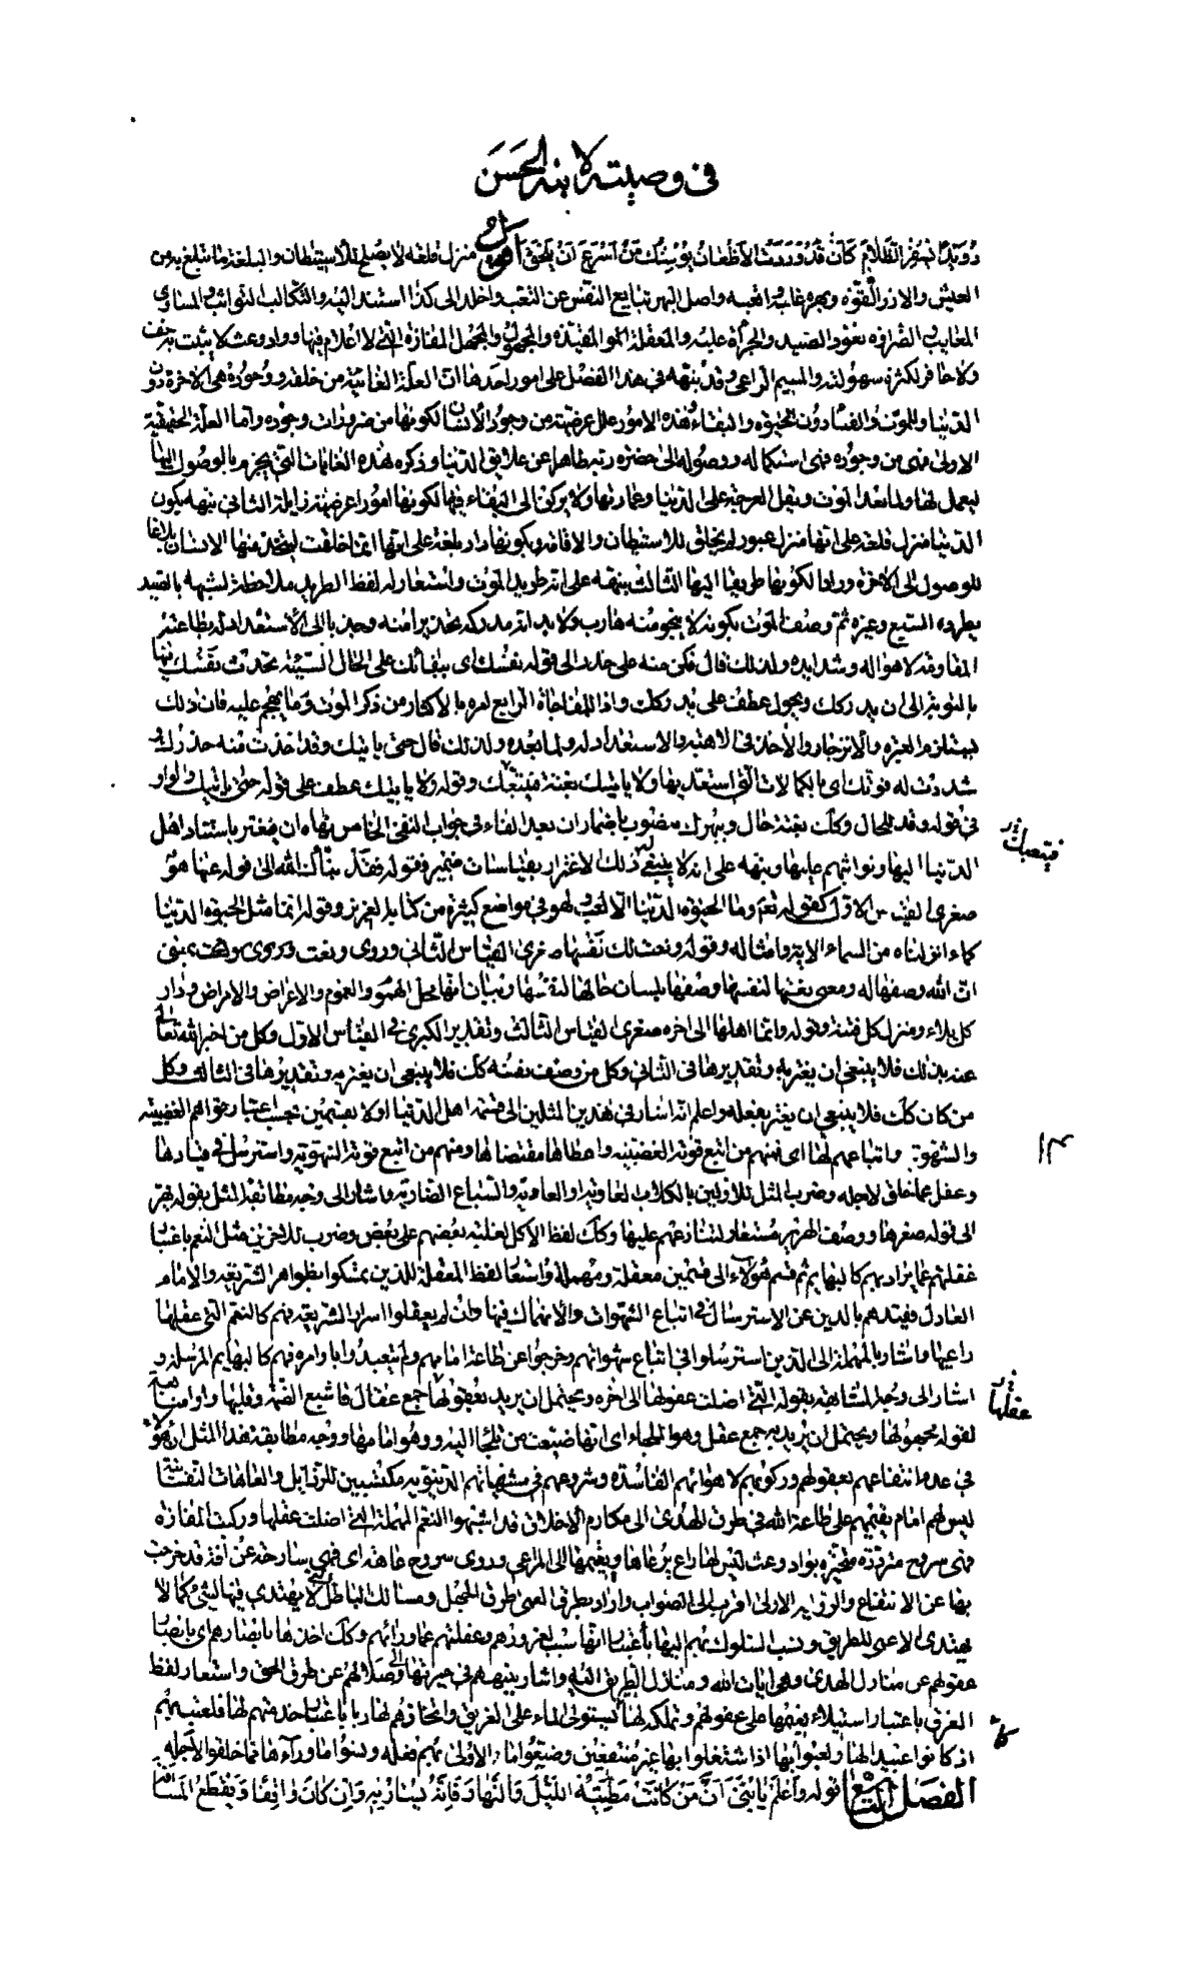 في وصيته لابنه الحَسَن
رُوَيْدًا يُسْفِرُ الظَّلَامُ كَأَنْ قَدْ وَرَدَتِ الْأَظْعَانُ يُوشِكُ مَنْ أَسْرَعَ أَنْ يَلْحَقَ اقول منزل قلعة لا يصلح للاستيطان والبلغة ما يتبلغ به من
العيش والازر القوة وبهره غلبه واتعبه واصل البهر تتابع النفس عن التعب واخلد الى كذا استند اليه والتكالب التواثب والمساوى
المعايب والضراوه تعود الصيد والجرأة عليه والمعقلة المقيدة والمجهول والمجهل المفازة التي لا اعلام فيها وواد وعث لا يثبت به خف
ولا حافر لكثرة سهولته والمسيم الراعي وقد نبهه في هذا الفصل على امور احدها ان العلة الغائية من خلقه ووجوده هي الاخرة دون
الدنيا والموت والفناء دون الحيوة والبقاء وهذه الامور علل عرضية من وجود الانسان لكونها من ضرورات وجوده واما العلة الحقيقية
الاولى فهي من وجوده فهى استكماله ووصوله الى حضرة ربه طاهرا عن علايق الدنيا وذكره هذه الغايات التي يجزم بالوصول اليها
ليعمل لها ولما بعد الموت ويقل العرجة على الدنيا وعمارتها ولا يركن الى البقاء فيها لكونها امورا عرضية زايلة الثاني نبهه بكون
الدنيا منزل قلعة على انها منزل عبور لم يخلق للاستيطان والاقامة وبكونها دار بلغة على انها انما خلقت ليتخذ منها الانسان بلاغا
للوصول الى الاخرة ودارا لكونها طريقا اليها الثالث نبهه على انه طريد الموت واستعار له لفظ الطريد ملاحظة لشبهه بالصيد
يطرده السبع وغيره ثم وصف الموت بكونه لا ينجو منه هارب ولا بد انه مدركه تحذيرا منه وجذبا الى الاستعداد له بطاعة
المفاوقة لاهواله وشدايده ولذلك قال فكن منه على حذر الى قوله نفسك اى ببقائك على الحال السيئة تحدث نفسك منها
بالتوبة الى ان يدركك ويحول عطف على يدركك واذا للمفاجاة الرابع امره بالاكثار من ذكر الموت وما يهجم عليه فان ذلك
يستلزم العبرة والانزجار والأخذ في الاهبة والاستعداد له ولما بعده ولذلك قال حتى يأتيك وقد اخذت منه حذرك و
شددت له قوتك اى بالكمالات التي استعد بها ولا يأتيك بغتة فيتبعك وقوله ولا يأتيك عطف على قوله حتى يأتيك والواو
في قوله وقد للحال وكك بغتة حال ويبهرك منصوب باضمار ان بعد الفاء في جواب النفي الخامس نهاه ان يغتر باستناد اهل
الدنيا اليها وتواثبهم عليها ونبهه على انه لا ينبغي له ذلك الاغترار بقياسات ضمير فقوله فقد نبأك الله الى قوله عنها هو
صغرى القياس الاول كقوله تعم وما الحيوة الدنيا الا لعب ولهو في مواضع كثيرة من كتابه العزيز وقوله انما مثل الحيوة الدنيا
كماء انزلناه من السماء الاية وامثاله وقوله ونعت لك نفسها صغرى القياس الثاني وروى ونعت وروى بمعنى
ان الله وصفها له ومعنى نعتها لنفسها وصفها بلسان حالها لنفسها وتبيان انها محل الهموم والغموم والاعراض والامراض ودار
كل بلاء ومنزل كل فتنة وقوله وانما اهلها الى اخره صغرى القياس الثالث وتقدير الكبرى في القياس الاول وكل من اخبر الله تعالى
عنه بذلك فلا ينبغي ان يغتر به وتقديرها في الثاني وكل من وصف نفسه كك فلا ينبغي ان يغتر به وتقديرها في الثالث وكل
من كان كك فلا ينبغي ان يغتر بفعله واعلم انه اشار في هذين المثلين الى قسمة اهل الدنيا اولا بقسمين بحسب اعتبار قواهم الغضبية
والشهوية واتباعهم لها اى فمنهم من اتبع قوته الغضبية واعطاها مقتضاها ومنهم من اتبع قوته الشهوية واسترسل في قيادها
وغفل عما خلق لاجله وضرب المثل للاولين بالكلاب العاوية والسباع الضارية واشار الى وجه مطابقة المثل بقوله يهر
الى قوله صغيرها ووصف الهرير مستعار لتنازعهم عليها وكك لفظ الاكل لغلبة بعضهم على بعض وضرب للاخرين مثل النعم باعتبار
غفلتهم عما يراد بهم كالبهايم ثم قسم هؤلاء الى قسمين معقلة ومهملة واستعار لفظ المعقلة للذين تمسكوا بظواهر الشريعة والامام
العادل فقيدهم بالدين عن الاسترسال في اتباع الشهوات والانهماك فيها وان لم يعقلوا اسرار الشريعة فهم كالنعم التي عقلها
راعيها واشار بالمهملة الى الذين استرسلوا في اتباع شهواتهم وخرجوا عن طاعة امامهم ولم يتعبدوا باوامره فهم كالبهايم المرسلة و
اشار الى وجه المشابهة بقوله التي اضلت عقولها الى اخره ويحتمل ان يريد بعقولها جمع عقال فاشبع الضمة وقلبها واوا مناسبة
لقوله مجهولها ويحتمل ان يريد به جمع عقل وهو الملجاء اى انها ضيعت من تلجأ اليه وهو امامها ووجه مطابقة هذا المثل ان هؤلاء
في عدم انتفاعهم بعقولهم وركوبهم لاهوائهم الفاسدة وشروعهم في مشتهياتهم الدنيوية مكتسبين للرذايل والعاهات النفسانية
ليس لهم امام يقيمهم على طاعة الله في طرق الهدى الى مكارم الاخلاق قد اشبهوا النعم المهملة التي اضلت عقلها وركبت المفازة
فهى سروح مترددة متحيرة بواد وعث ليس لها راع يرعاها ويقيمها الى المراعي وروى سروح عاهة اى فهى سارحة عن آفة قد خرجت
بها عن الانتفاع والرواية الاولى اقرب الى الصواب واراد بطرق العمى طرق الجهل ومسالك الباطل التي لا يهتدى فيها لشئ كما لا
يهتدى الاعمى للطريق ونسب السلوك بهم اليها باعتبار انها سبب لغرورهم وغفلتهم عما ورائهم وكك اخذها بابصارهم اى بابصار
عقولهم عن منار الهدى وهى ايات الله ومنازل الطريق اليه واشار بتيههم في حيرتها الى ضلالهم عن طرق الحق واستعار لفظ
الغرق باعتبار استيلاء نعيمها على عقولهم وتملكه لها كاستيلاء الماء على الغريق واتخاذهم لها ربا باعتبار خدمتهم لها فلعبت بهم
اذ كانوا عبيدا لها ولعبوا بها اذا اشتغلوا بها غير منتفعين وضيعوا ما الاولى بهم فعله ونسوا ما ورآءها مما خلقوا لاجله
الفصل التاسع قوله وَاعْلَمْ يَا بُنَيَّ أَنَّ مَنْ كَانَتْ مَطِيَّتُهُ اللَّيْلَ وَالنَّهَارَ فَإِنَّهُ يُسَارُ بِهِ وَإِنْ كَانَ وَاقِفًا وَيَقْطَعُ الْمَسَافَةَ
فيتعبك
١٣
عقلها